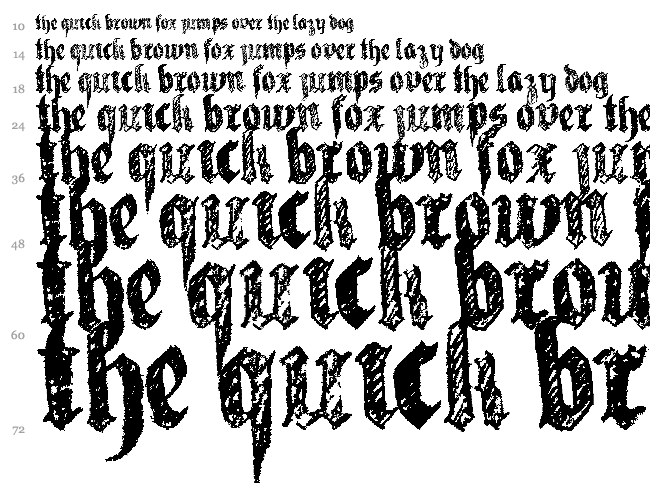 10 the quick brown fox jumps over the lazy dog
14 the quick brown fox jumps over the lazy dog
18 the quick brown fox jumps over the lazy dog
24 the quick brown fox jumps over the
36 the quick brown fox jum
48 the quick brown
60 the quick brou
72 the quick br